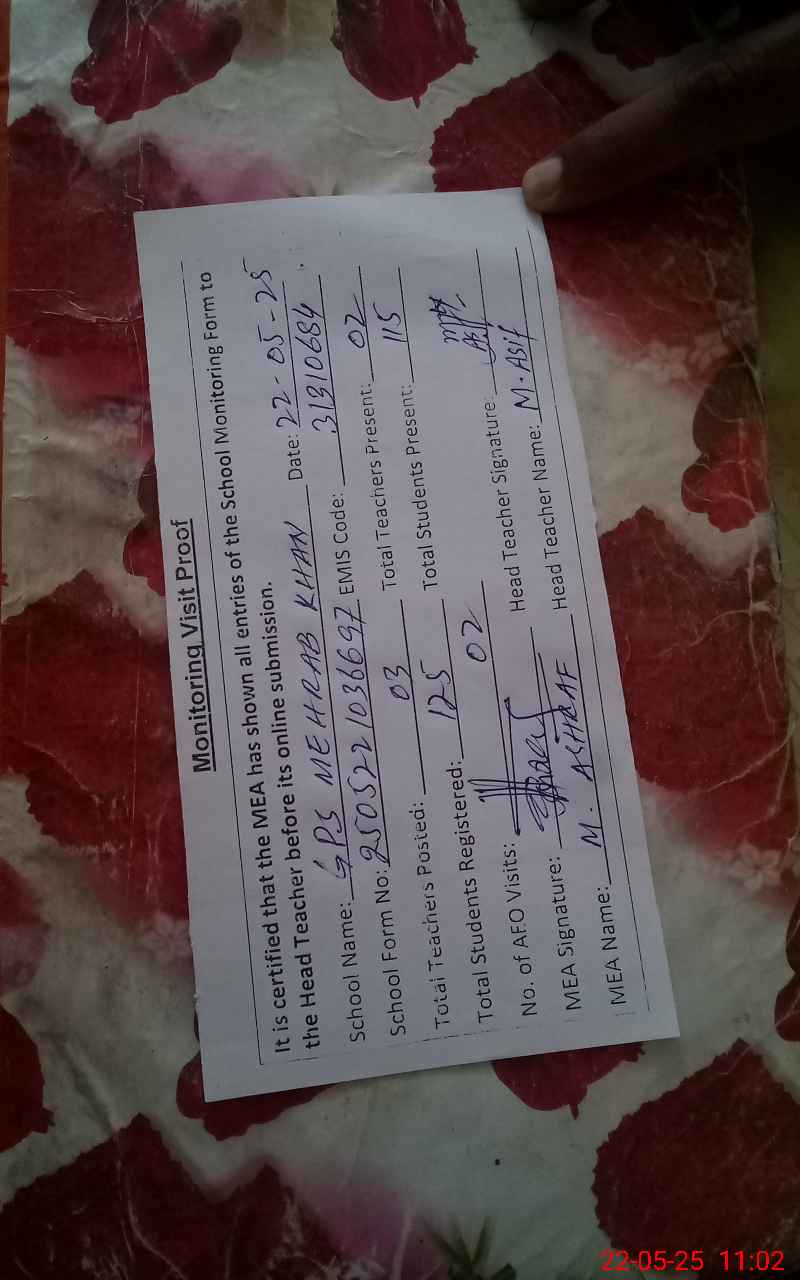 Monitoring Visit Proof
It is certified that the MEA has shown all entries of the School Monitoring Form to
the Head Teacher before its online submission.
School Name: GPS MEHRAB KHAN Date: 22-05-25
School Form No: 2505221036697 EMIS Code: 31310684
Total Teachers Posted: 03 Total Teachers Present: 02
Total Students Registered: 125 Total Students Present: 115
No. of AEO Visits: 02
MEA Signature: Head Teacher Signature: Asif
MEA Name: M. ASHRAF Head Teacher Name: M. Asif
22-05-25 11:02